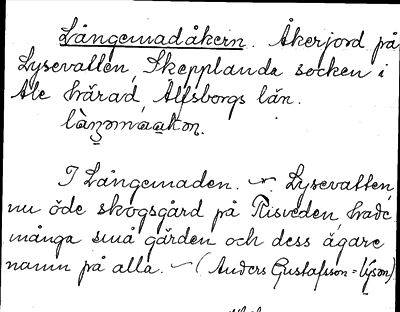 Långemadåkern. Åkerjord på
Lysevatten, Skepplanda socken i
Ale härad, Älfsborgs län.
I Långemaden. ~. Lysevatten,
nu öde skogsgård på Risveden, hade
många små gärden och dess ägare
namn på alla. ~ (Anders Gustafsson = Lysen)